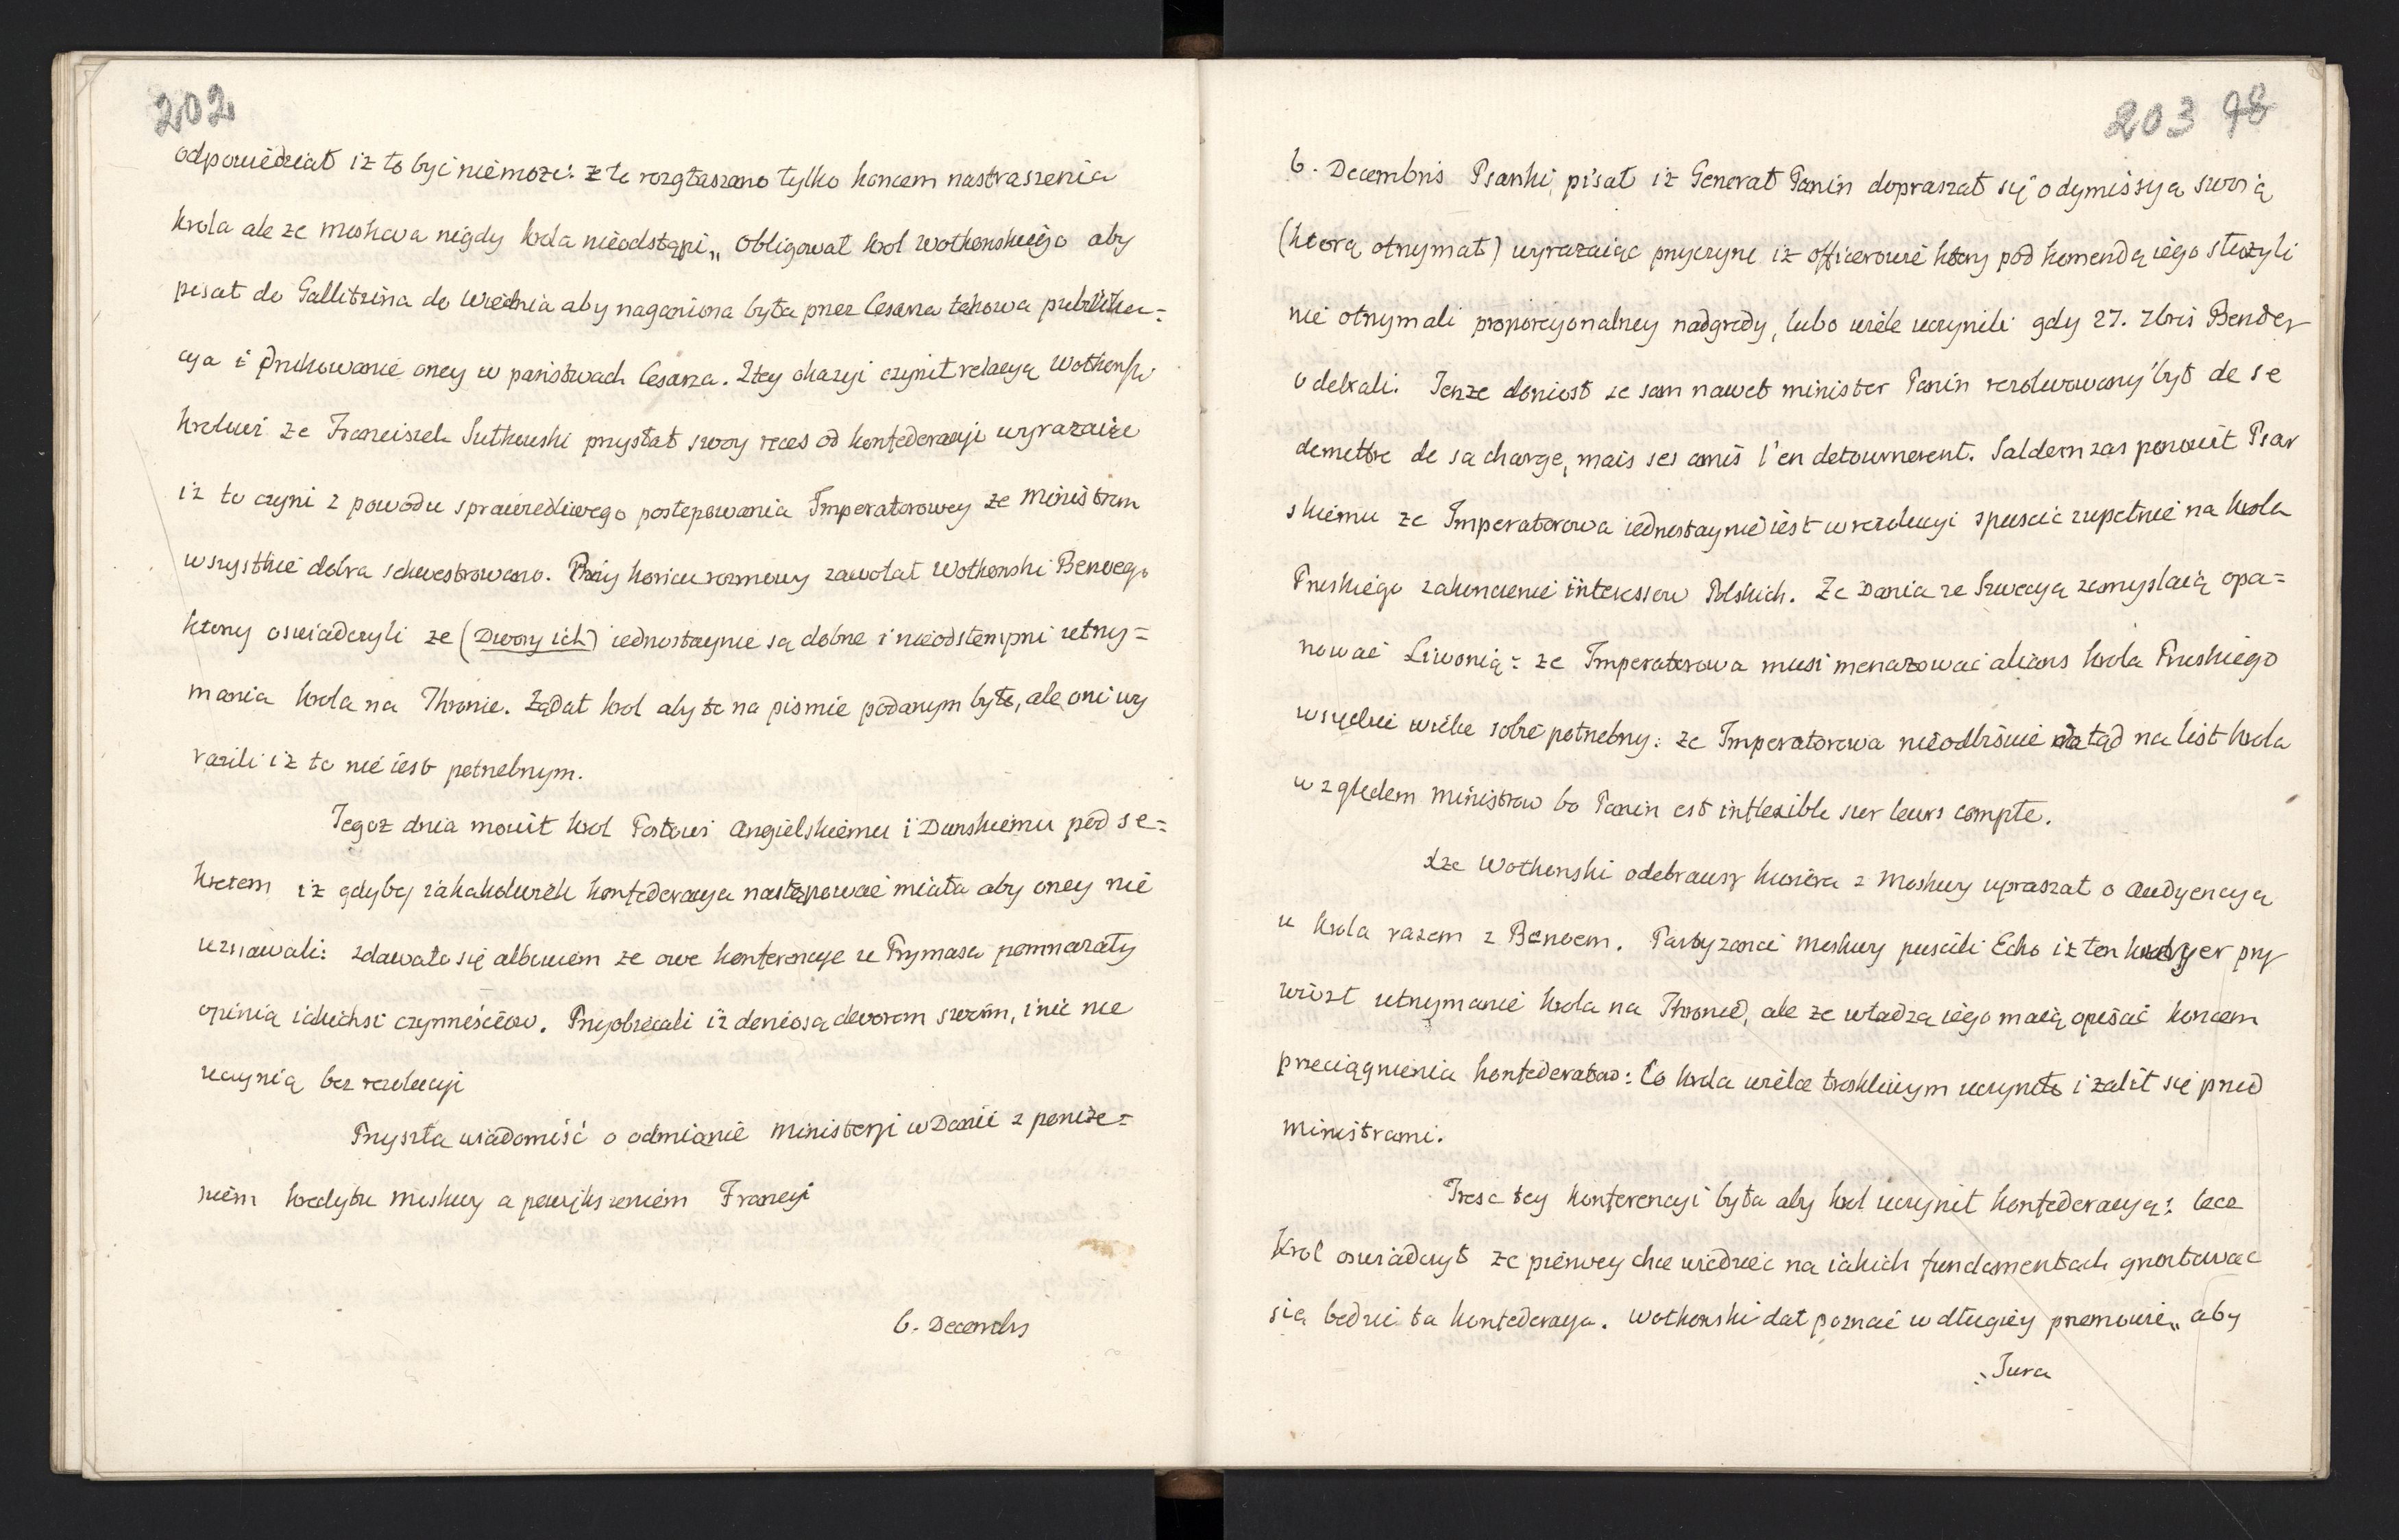 202
odpowiedział iż to być niemoże: że to rozgłaszano tylko koncem nastraszenia
krola ale ze moskwa nigdy krola nieodstąpi„ obligował krol Wołkonskiego aby
pisał do Gallitzina do Wiednia aby naganiona była przez Cesarza takowa publika=
cya i drukowanie oney w państwach Cesarza. Ztey okazyi czynił relacyą Wołkonski
krolowi ze Franciszek Sułkowski przysłał swoy reces od konfederacyi wyrazaiąc
iż to czyni z powodu sprawiedliwego postępowania Imperatorowey ze Ministrom
wszystkie dobra sekwestrowano. Przy koncu rozmowy zawołał Wołkonski Benoego
ktorzy oswiadczyli ze (Dwory ich) iednostaynie są dobne i nieodstempni utrzy=
mania krola na Thronie. Żądał krol aby to na pismie podanym było, ale oni wy
razili iż to nie iest potrzebnym.
Tegoz dnia mowił krol Posłowi Angielskiemu i Dunskiemu pod se=
kretem iz gdyby iakakolwiek konfederacya nastąpowac miała aby oney nie
uznawali: zdawało się albowiem ze owe konferencye u Prymasa pomnazały
opinią iakichsi czynnościow. Przyobiecali iż doniosą dworom swoim, i nic nie
uczynią bez rezolucyi
Przyszła wiadomość o odmianie ministeryi w Danii z poniże=
niem kredytu moskwy a powiększeniem Francyi
6. Decembrs
203 98
6. Decembris Psarski pisał iż Generał Panin dopraszał się o dymissyą swoią
(ktorą otrzymał) wyrazaiąc przyczyne iż officerowie ktorzy pod komendą iego służyli
nie otrzymali proporcyonalney nadgrody, lubo wiele uczynili gdy 27. 7bris Bender
odebrali. Tenze doniosł ze sam nawet minister Panin rezolwowany był de se
demettre de sa charge, mais ses amis l'en detournerent. Saldern zas ponowił Psar
skiemu ze Imperatorowa iednostaynie iest w rezolucyi spuscic zupełnie na krola
Pruskiego zakonczenie interessow Polskich. Ze Dania ze Szwecyą zamyslaią opa=
nować Liwonią: ze Imperatorowa musi menazowac alians krola Pruskiego
wszelkie wielce sobie potrzebny: ze Imperatorowa nieodpisuie dotąd na list krola
względem Ministrow bo Panin est inflexible sur leurs compte.
Xże Wołkonski odebrawszy kuriera z Moskwy upraszał o Audyencyą
u krola razem z Benoem. Partyzanci Moskwy puscili Echo iż ten kuryer przy
wiozł utrzymanie krola na Thronie, ale ze władzą iego maią opisać koncem
przeciągnienia konfederatow: Co krola wielce troskliwym uczyniło i zalił się przed
ministrami.
Tresc tey konferencyi była aby krol uczynił konfederacyą: lecz
Krol oswiadczył ze pierwey chce wiedziec na iakich fundamentach gruntowac
się bedzie ta konfederacya. Wołkonski dał poznać w długiey przemowie„ aby
Jura